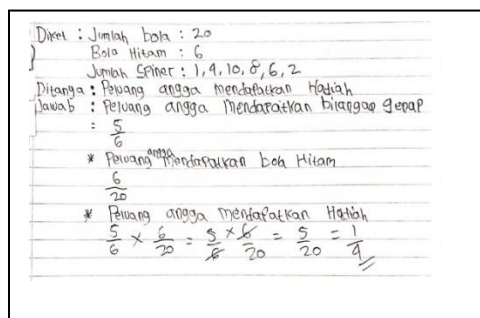 Diket : Jumlah bola : 20
Bola Hitam : 6
Jumlah Spiner : 1, 4, 10, 8, 6, 2
Ditanya : Peluang angga mendapatkan Hadiah
Jawab : Peluang angga mendapatkan bilangan genap
= 5/6
* Peluang angga mendapatkan bola Hitam
6/20
* Peluang angga mendapatkan Hadiah
5/6 × 6/20 = 5/6 × 6/20 = 5/20 = 1/4